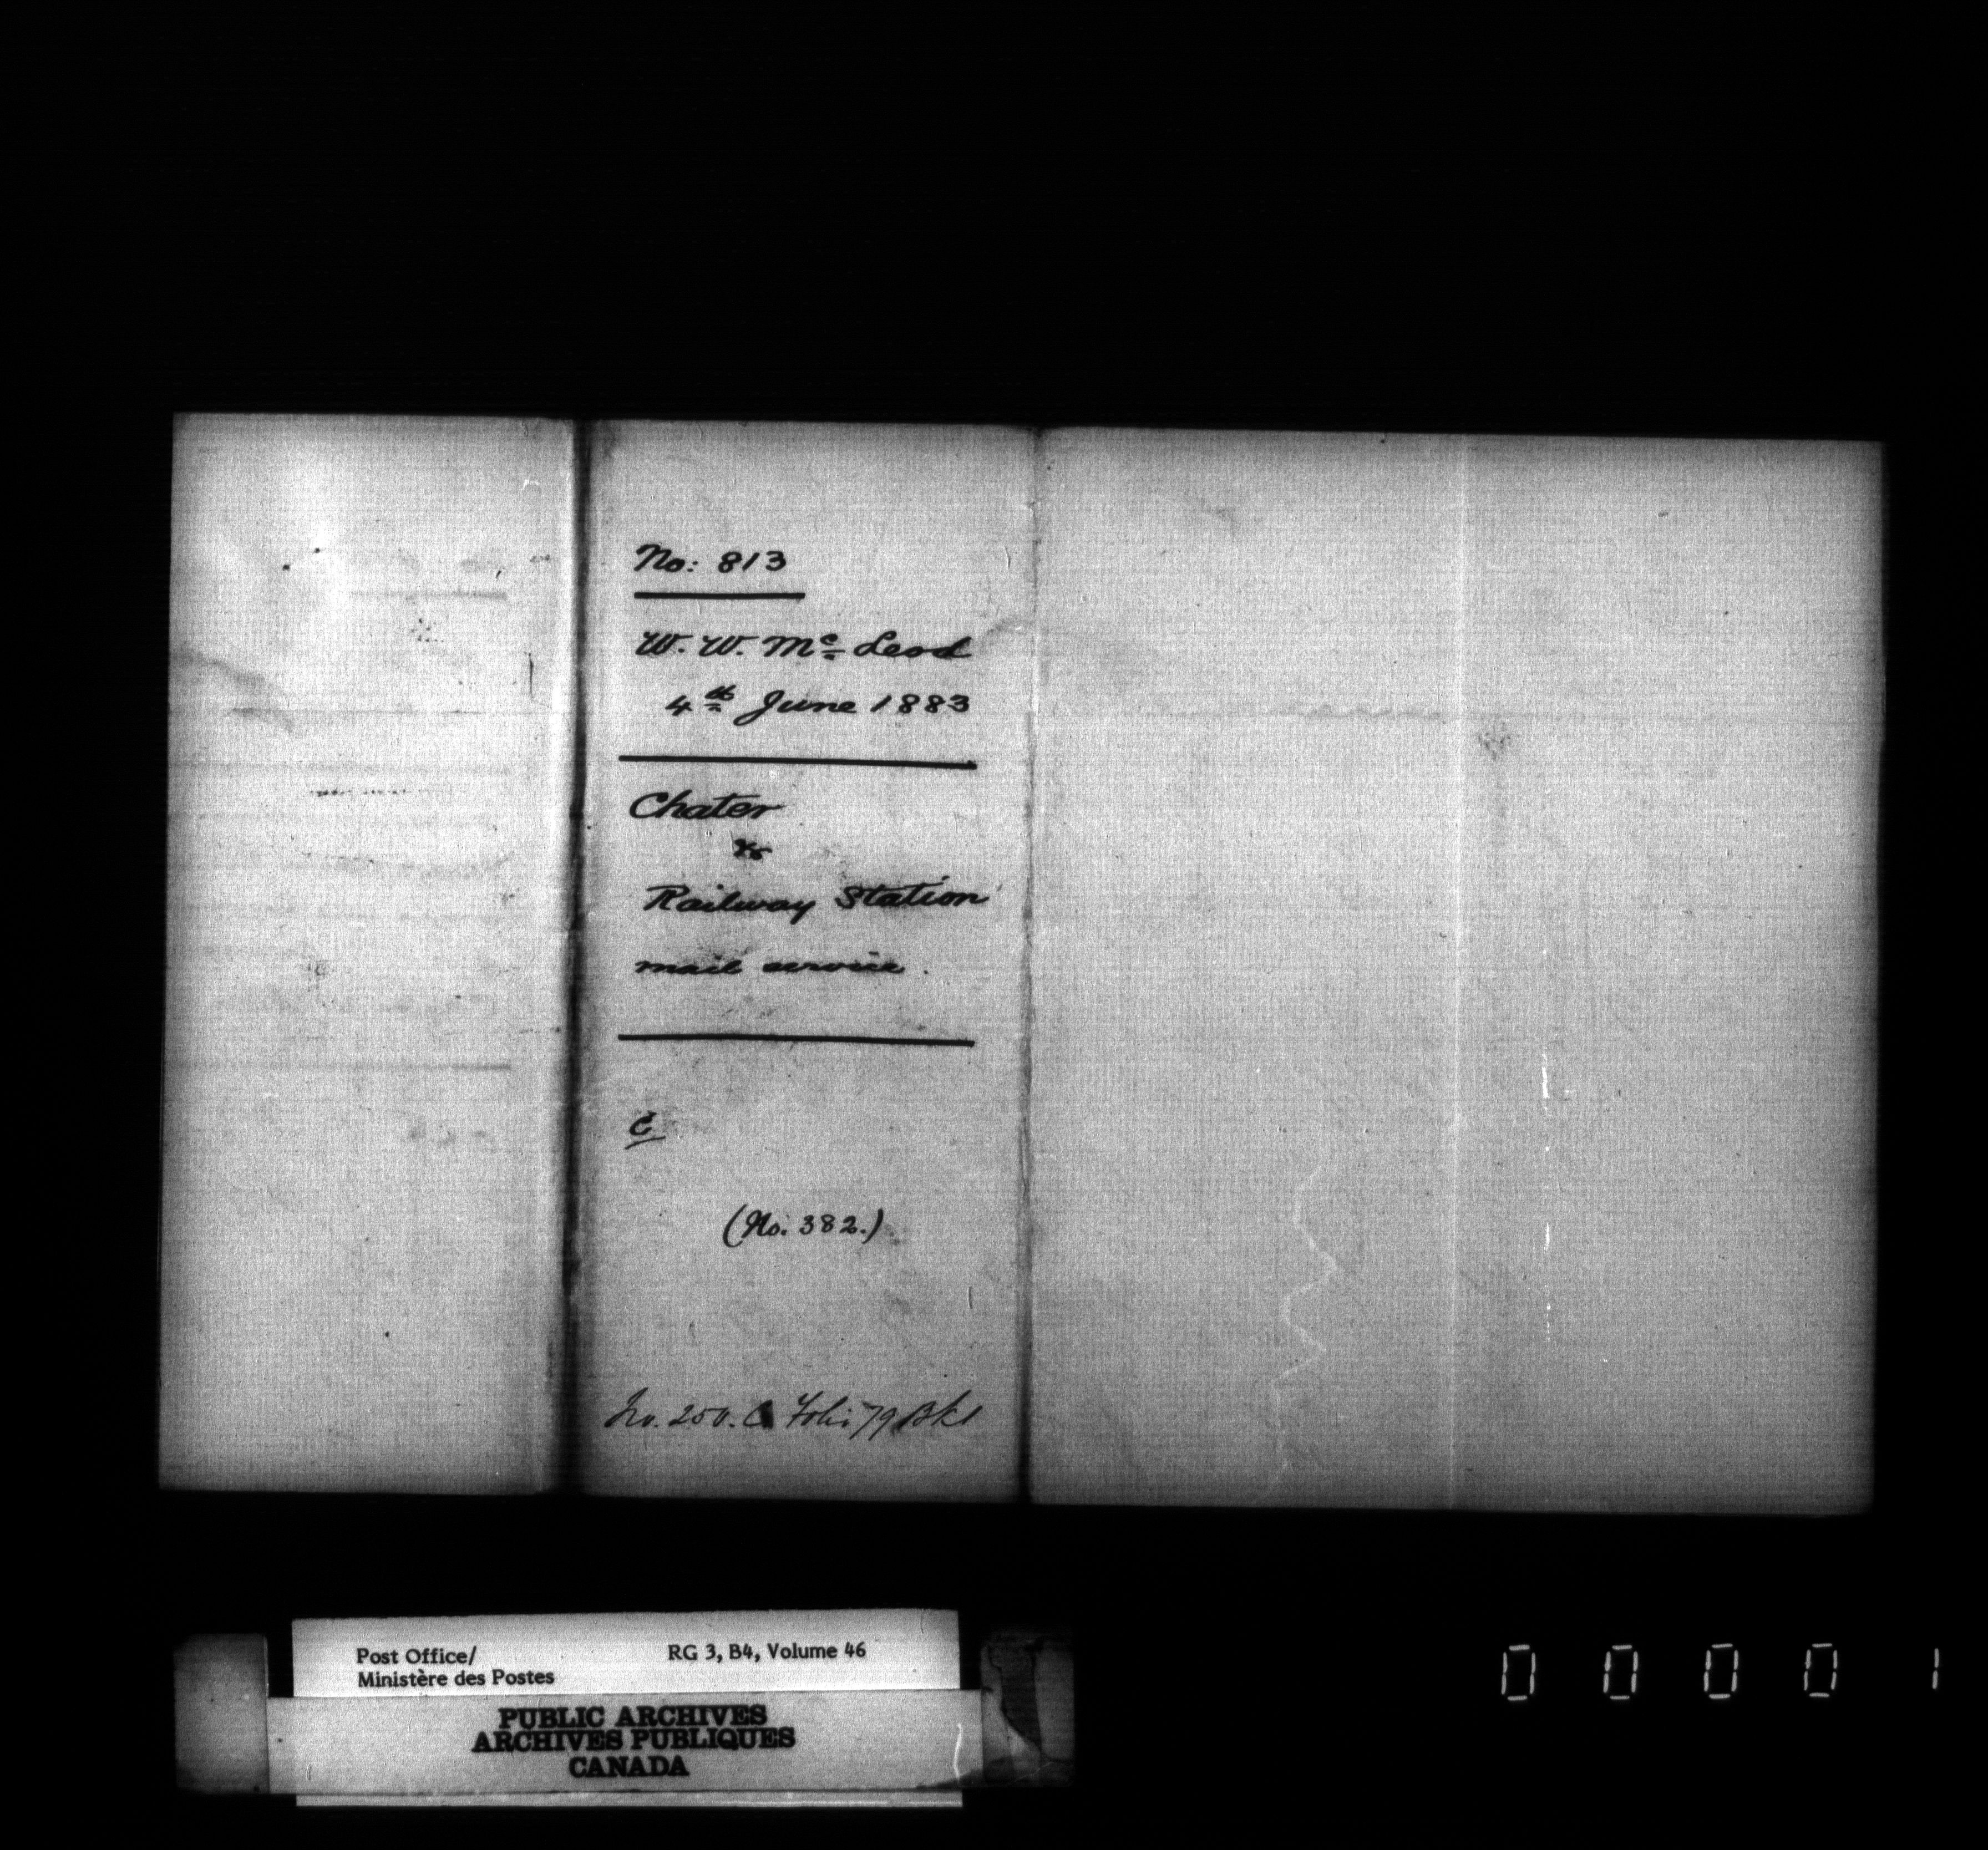 No: 813
W. W. Mc Leod
4th June 1883
Chater
&
Railway Station
mail service.
C
(No. 382.)
No. 250. C Folio 79 Bk1
Post Office/
Ministère des Postes
RG 3, B4, Volume 46
PUBLIC ARCHIVES
ARCHIVES PUBLIQUES
CANADA
0 0 0 0 1